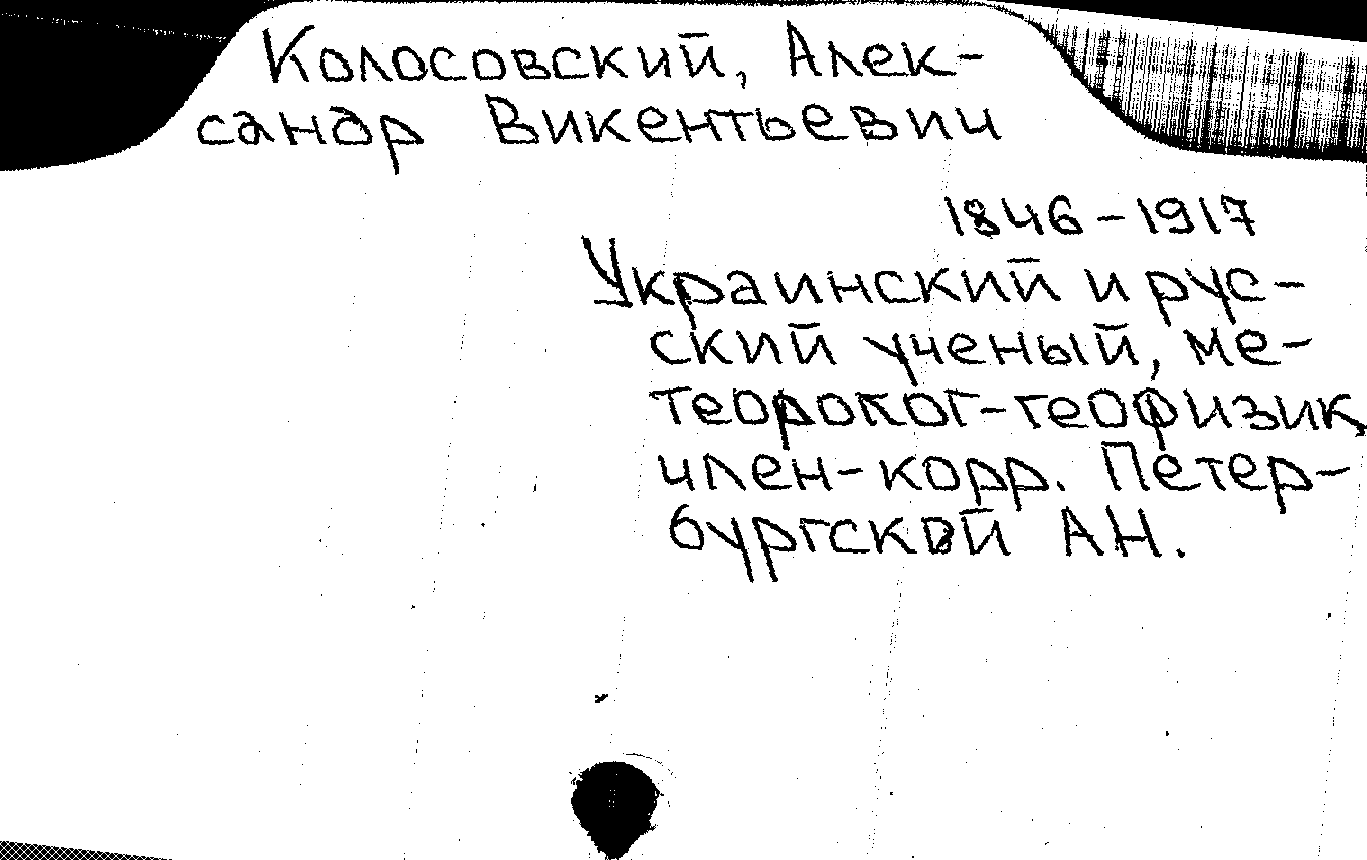 Колосовский, Алек-
сандр Викентьевич
1846-1917
Украинский и рус-
ский ученый, ме-
теоролог-геофизик,
член-корр. Петер-
бургской АН.